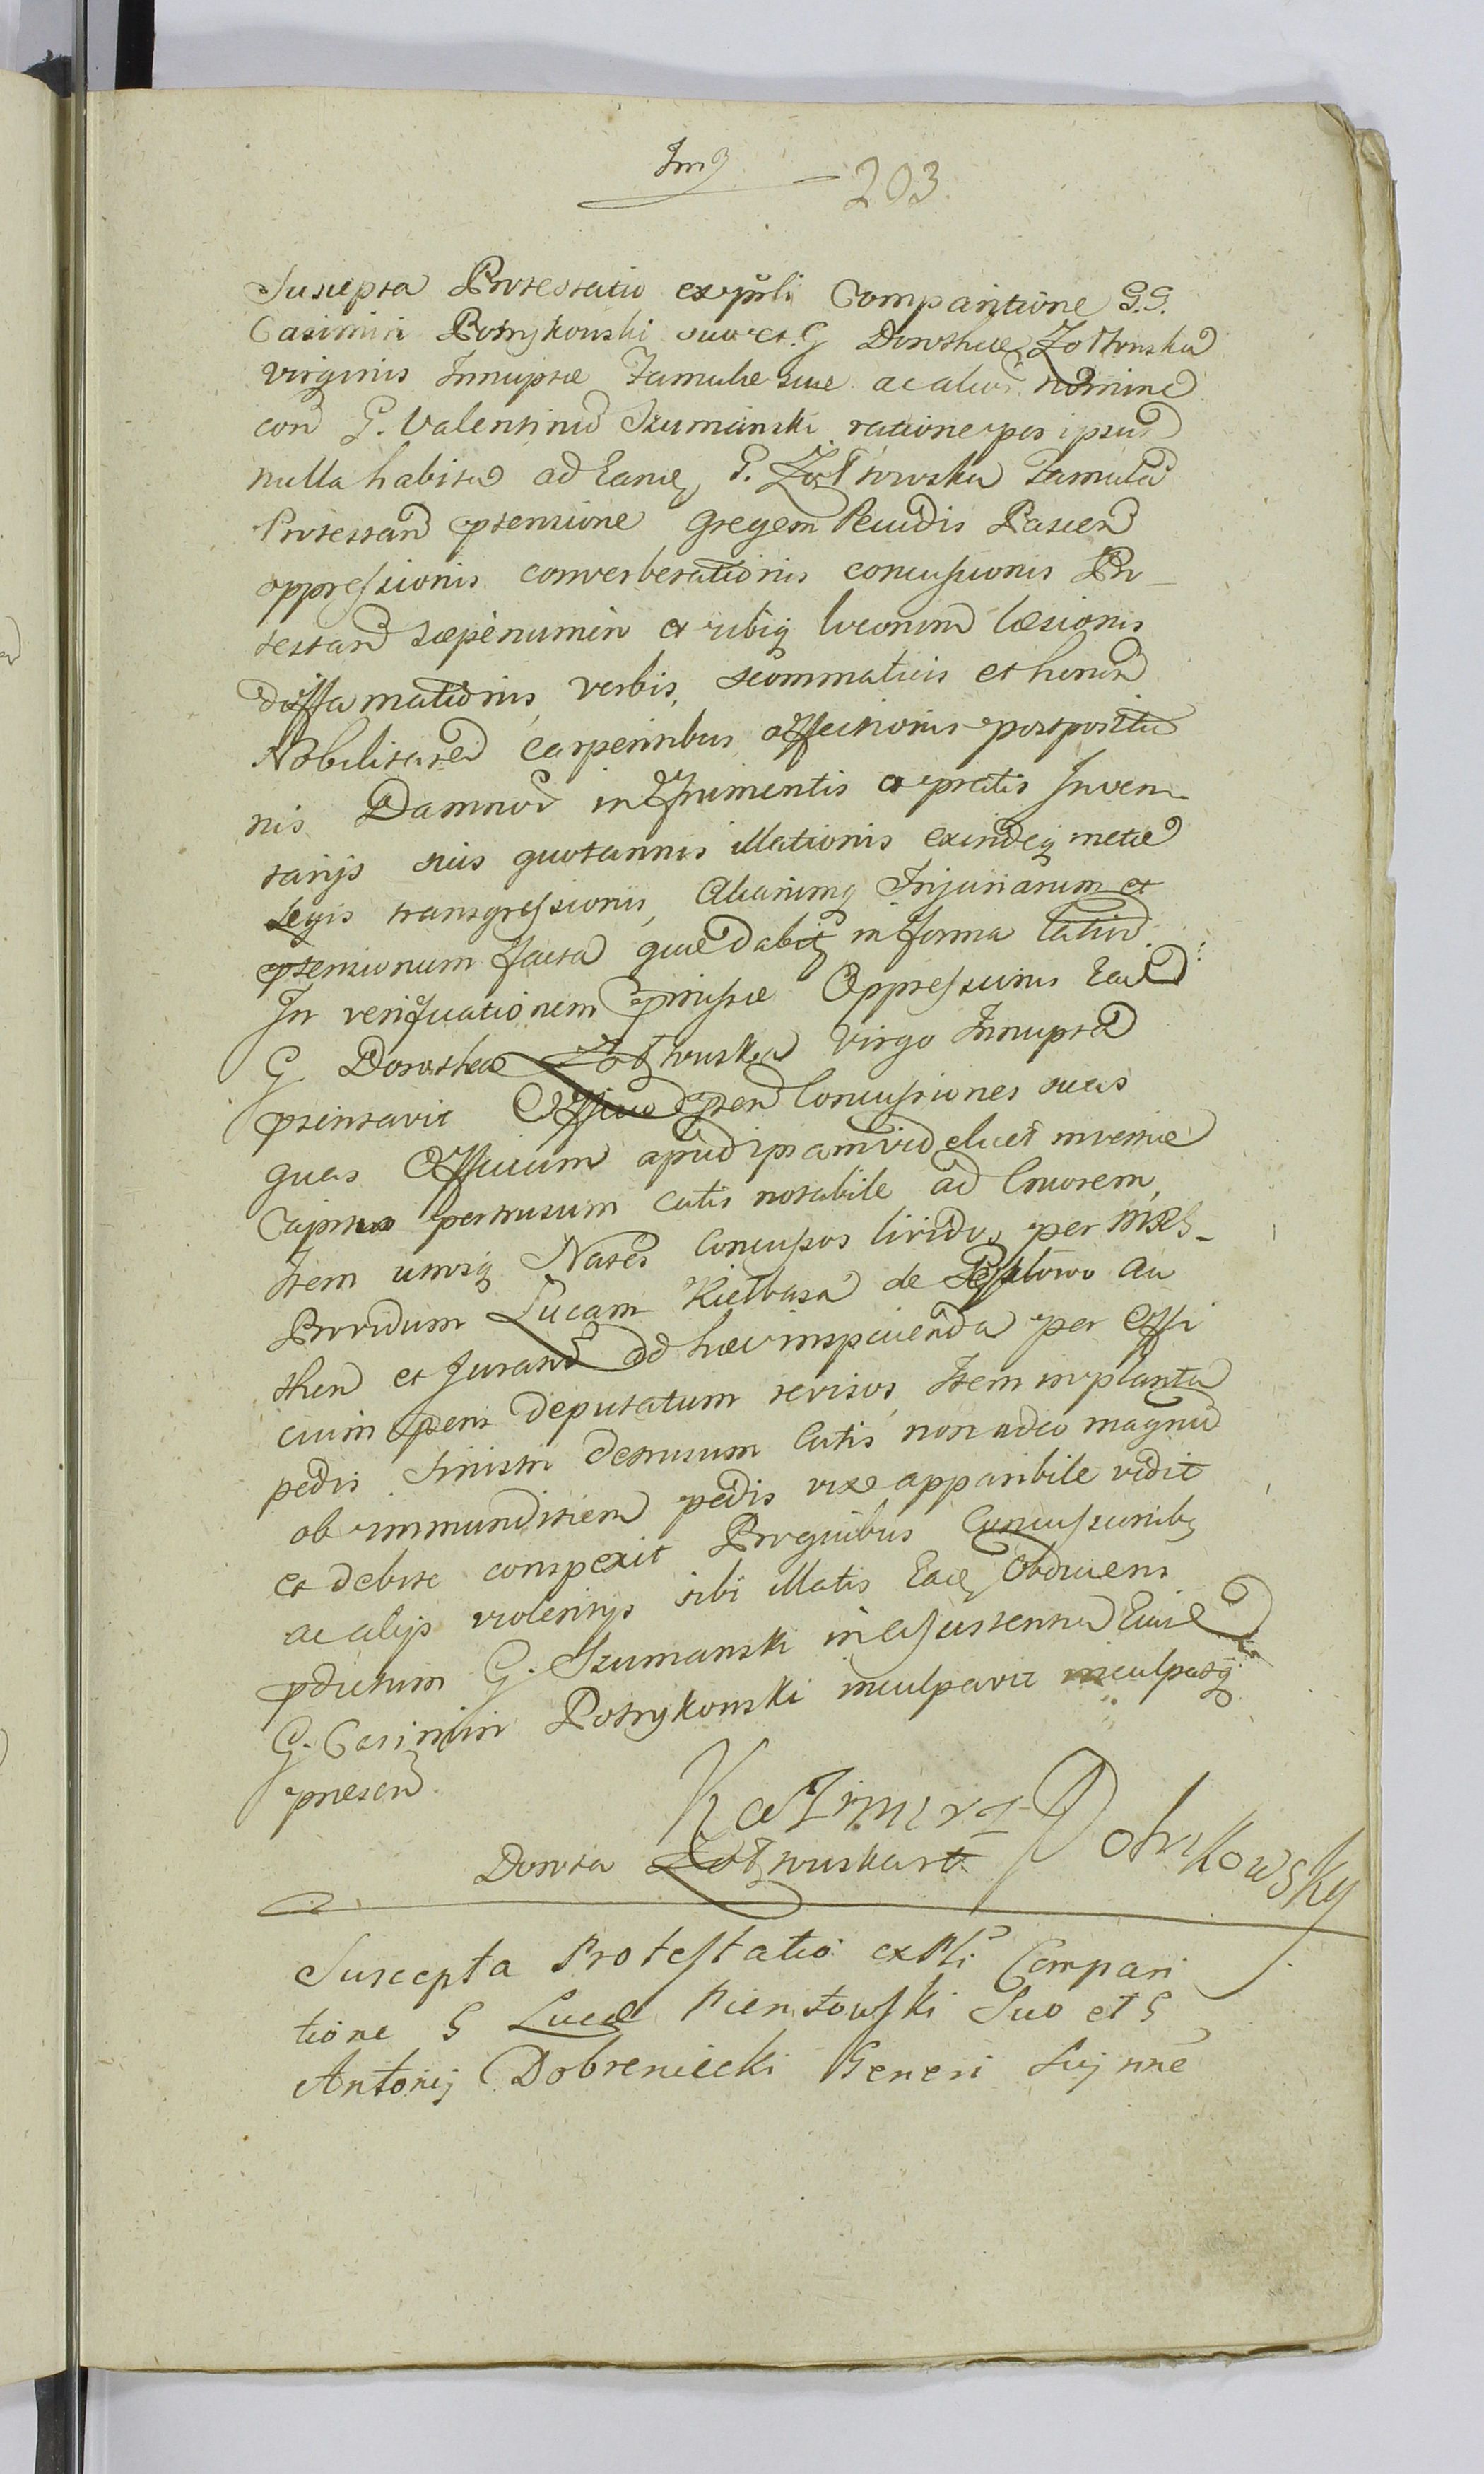 203
Suscepta Protestatio ex pñli Comparitione G.G.
Casimiri Potrykowski suo et G Dorotheæ Zołtowska
virginis Innuptæ Famulæ suæ ac alior nomine
con G. Valentinũ Szumański ratione per ipsũ
nulla habita ad Eand G. Zołtowska Famulã
Protestan ptensione gregem Pecudis Pascen
oppressionis converberationis concussionis Pro
testan sæpenumero et ubiq locorum læsionis
diffamationis verbis, scommaticis et honorẽ
Nobilitarẽ carpentibus affectionis postpositio
nis Damnor in Frumentis et pratis Inven
tarijs suis quotannis illationis exindeq metæ
Legis transgressionis, Aliarumq Injuriarum et
ptensionum facta quæ dabit in forma latiori
In verificationem pmissæ Oppressionis Ead
G Dorothea Zołtowska Virgo Innupta
psentavit Officio pten Concussiones suas
quas Officium apud ipsam videlicet in vertice
Capitis pertrusum cutis notabile ad cruorem,
Item utrosq Nates Concussos lividos per
Providum Lucam Kiełbasa de au
then et Juratũ ad hæc inspicienda per Offi
cium psens deputatum revisos, Item in planta
pedis Sinistri detrusum Cutis non adeo magnũ
ob immunditiem pedis vix apparibile vidit
et debite conspexit Pro quibus Concussionibq
ac alijs violentijs sibi illatis Eadẽ Obducens
pdictum G. Szumanski in Assistentia Ejusdẽ
G. Casimiri Potrykowski inculpavit inculpatq
præsen
Kazimierz Potrikowsky
Dorota Zołtowska
Suscepta Protestatio ex Pli Compari
tione G Lucæ Pientowski Suo et G
Antonij Dobreniecki Generi Sui nñe